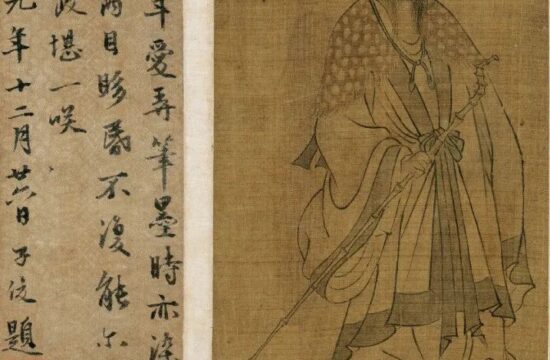 年愛弄筆墨時亦染
兩目眵昏不復能尒
政堪一咲
元年十二月廿六日子俊題